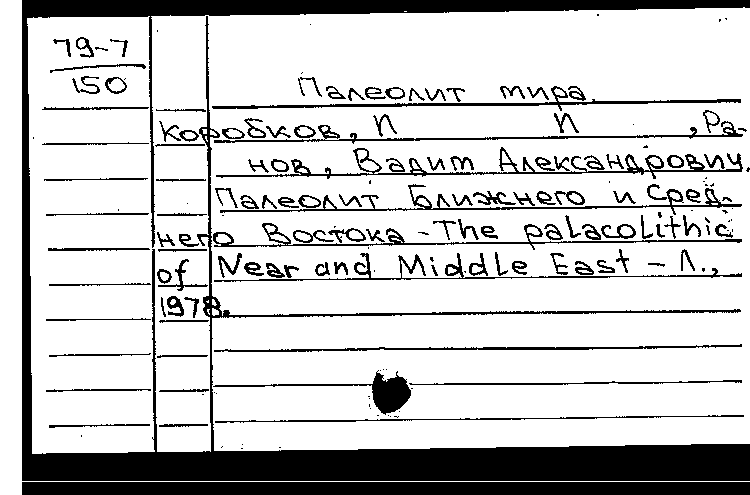 79-7
150
Палеолит мира.
Коробков, И И , Ра-
нов, Вадит Александрович.
Палеолит Ближнего и Сред-
него Востока - The palacolithic
of Near and Middle East - Л.,
1978.